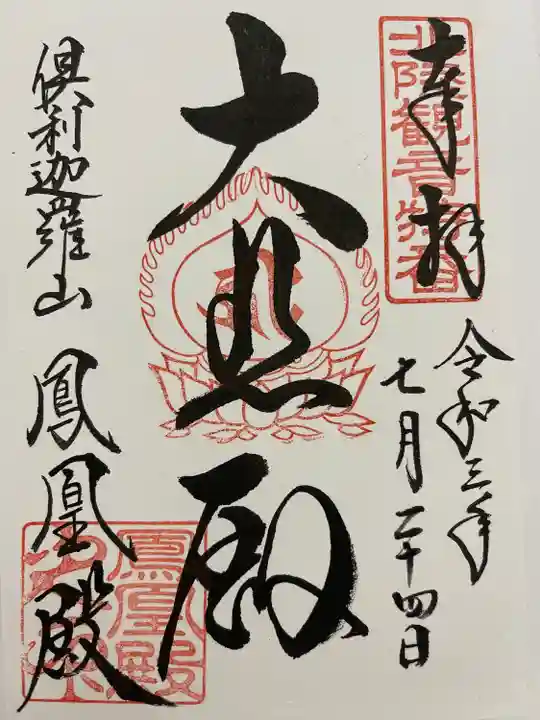 奉拝
令和三年
七月二十四日
大悲殿
倶利迦羅山 鳳凰殿
鳳凰殿